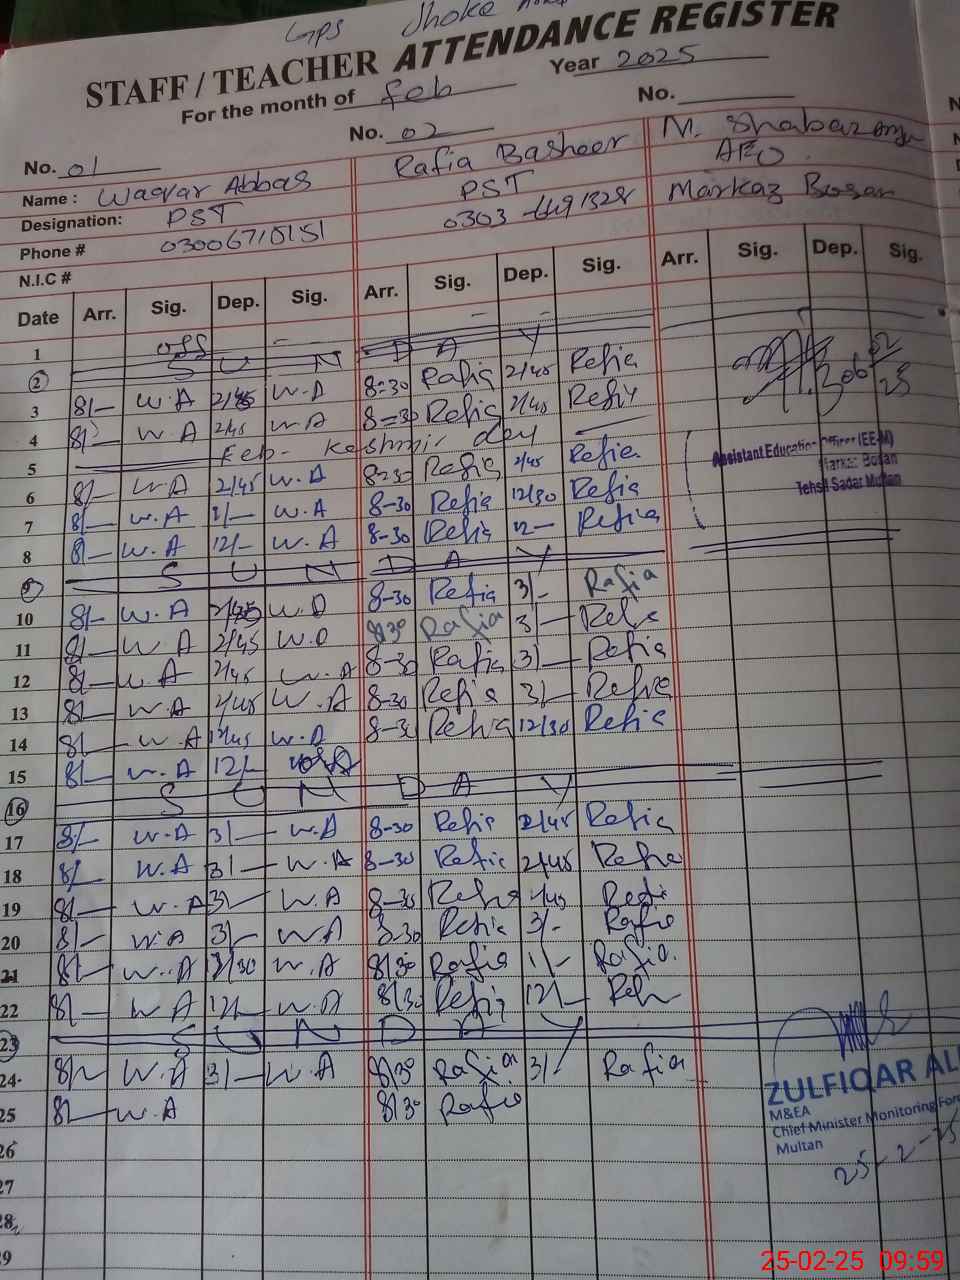 GPS Jhoke
STAFF / TEACHER ATTENDANCE REGISTER
For the month of Feb Year 2025
No. 01 No. 02 No.
Name : Waqar Abbas Rafia Basheer M. Shabaz
Designation: PST PST AEO
Phone # 03006710151 0303 Markaz Bosan
N.I.C #
Date Arr. Sig. Dep. Sig. Arr. Sig. Dep. Sig. Arr. Sig. Dep. Sig.
1 off
2 S U N D A Y
3 8/- W.A 2/45 W.A 8=30 Rafia 2/45 Refia
4 8/- W.A 2/45 W.A 8=30 Refia 2/45 Refia
5 Feb- Kashmir day
6 8/- W.A 2/45 W.A 8-30 Refia 2/45 Refia
7 8/- W.A W.A 8-30 Refia 12/30 Refia
8 8/- W.A 12/- W.A 8-30 Refia 12- Refia
9 S U N D A Y
10 8/- W.A W.A 8-30 Refia 3/- Rafia
11 8/- W.A 2/45 W.A 8/30 Rafia 3/-
12 8/- W.A 2/45 W.A 8-30 Rafia 3/- Refia
13 8/- W.A 2/45 W.A 8-30 Refia 3/- Refia
14 8/- W.A 12/45 W.A 8-30 Refia 12/30 Refia
15 8/- W.A 12/-
16 S U N D A Y
17 8/- W.A 3/- W.A 8-30 Refia 2/45 Refia
18 8/- W.A 3/- W.A 8-30 Refia 2/45 Refia
19 8/- W.A 3/- W.A 8-30 Refia 2/45
20 8/- W.A 3/- W.A 8-30 Refia 3/- Rafia
21 8/- W.A 12/30 W.A 8/30 Rafia 1/- Rafia
22 8/- W.A 12/- W.A 8/30 Refia 12/-
23 S U N D A Y
24 8/- W.A 3/- W.A 8/30 Rafia 3/- Rafia
25 8/- W.A 8/30 Rafia
26
27
28
29
Assistant Education Officer (EE-M)
Markaz Bosan
Tehsil Sadar Multan
ZULFIQAR AL
M&EA
Chief Minister Monitoring For
Multan
25-2-25
25-02-25 09:59